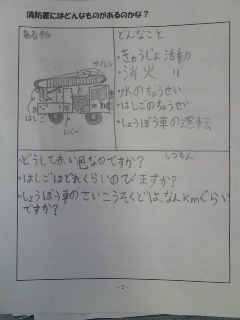 消防署にはどんなものがあるのかな？
あるもの
サイレン
はしご
レバー
どんなこと
・きゅうじょ活動
・消火 〃
・水のちょうせい
・はしごのちょうせい
・しょうぼう車の運転
しつもん
・どうして赤い色なのですか？
・はしごはどれくらいのびますか？
・しょうぼう車のさいこうそくどは、なんkmぐらい
ですか？
-2-